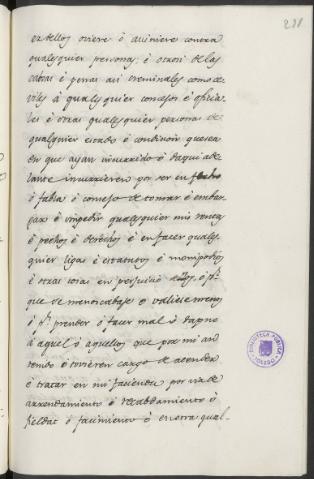 211
extellos oviere ó aviniere contra
qualesquier personas, é otrosi de las
cabsas é penas asi creminales como ce-
viles á qualesquier concejos é oficia-
les é otras qualesquier personas de
qualquier estado é condicion que sea
en que ayan incurrido ó daqui ade-
lante incurrieren por ser en fecho
ó fabla ó consejo de tomar é embar-
gar é impedir qualesquier mis rentas
é pechos é derechos é en facer quales-
quier ligas é estatutos é monipodios
é otras cosas en perjuicio dellos, ó
que se menoscabase o valiese menos
ó prender ó facer mal ó dapno
á aquel ó aquellos que por mi man-
tovieren cargo de atender
é tratar en mi facienda por via de
arrendamiento ó recabdamiento ó
fieldat ó facimiento é en otra qual-
BIBLIOTECA PUBLICA
TOLEDO